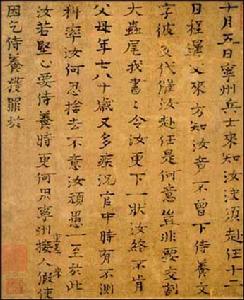 十月五日寧州兵士來知汝決須赴任十一
日程又來方知汝不曾下侍養文
字彼交代催汝赴任是何意豈非要交割
大蟲尾我書令汝更下一狀汝終不肯
父母年七八十歲又多疾況官中時有不測
科率汝何忍捨去不意汝頑愚一至於此
汝若堅心要侍養時更何用寧州接人假使
因乞侍養獲罪於